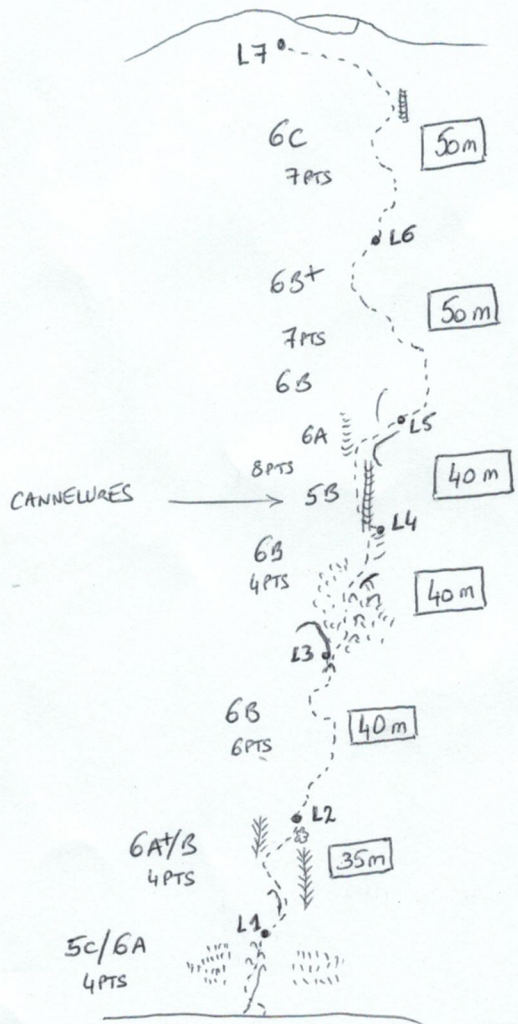 L7
6C
50m
7PTS
L6
6B+
50m
7PTS
6B
L5
6A
8PTS
40m
CANNELURES
5B
L4
6B
4PTS
40m
L3
6B
40m
6PTS
L2
6A+/B
35m
4PTS
L1
5C/6A
4PTS